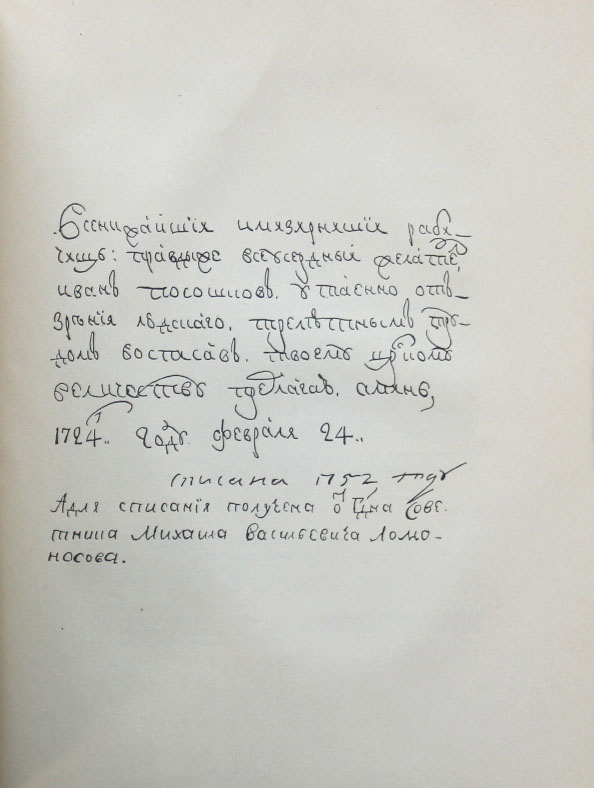 всенижайшїи и мизирнѣишїи раби-
чищь: правды же всеусердныи желатель,
иванъ посошковъ. утаенно от ъ-
зрѣнїя людскаго. трелѣтнымъ тру-
домъ восписавъ. твоему црскому
величеству предлагаю. аминь,
1724.. году. февраля 24..
списана 1752 году
А для списанїя получена от Гдна Сове-
тника Михаила Васильевича Ломо-
носова.